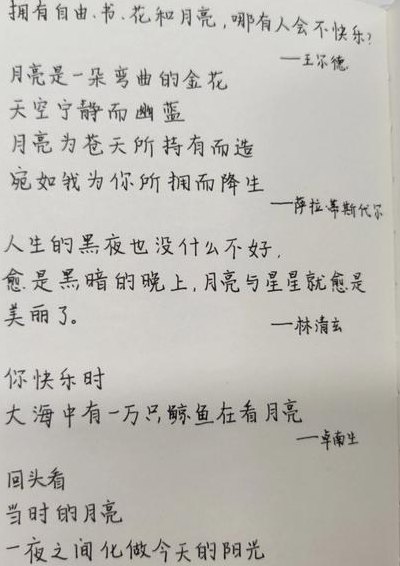 拥有自由、书、花和月亮，哪有人会不快乐？
——王尔德
月亮是一朵弯曲的金花
天空宁静而幽蓝
月亮为苍天所持有而造
宛如我为你所拥而降生
——萨拉·蒂斯代尔
人生的黑夜也没什么不好，
愈是黑暗的晚上，月亮与星星就愈是
美丽了。
——林清玄
你快乐时
大海中有一万只鲸鱼在看月亮
——卓南生
回头看
当时的月亮
一夜之间化做今天的阳光